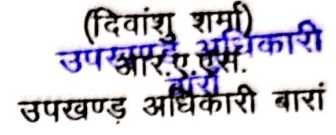 (दिवांशु शर्मा)
उपखण्ड अधिकारी
आर.ए.एस.
बारां
उपखण्ड़ अधिकारी बारां